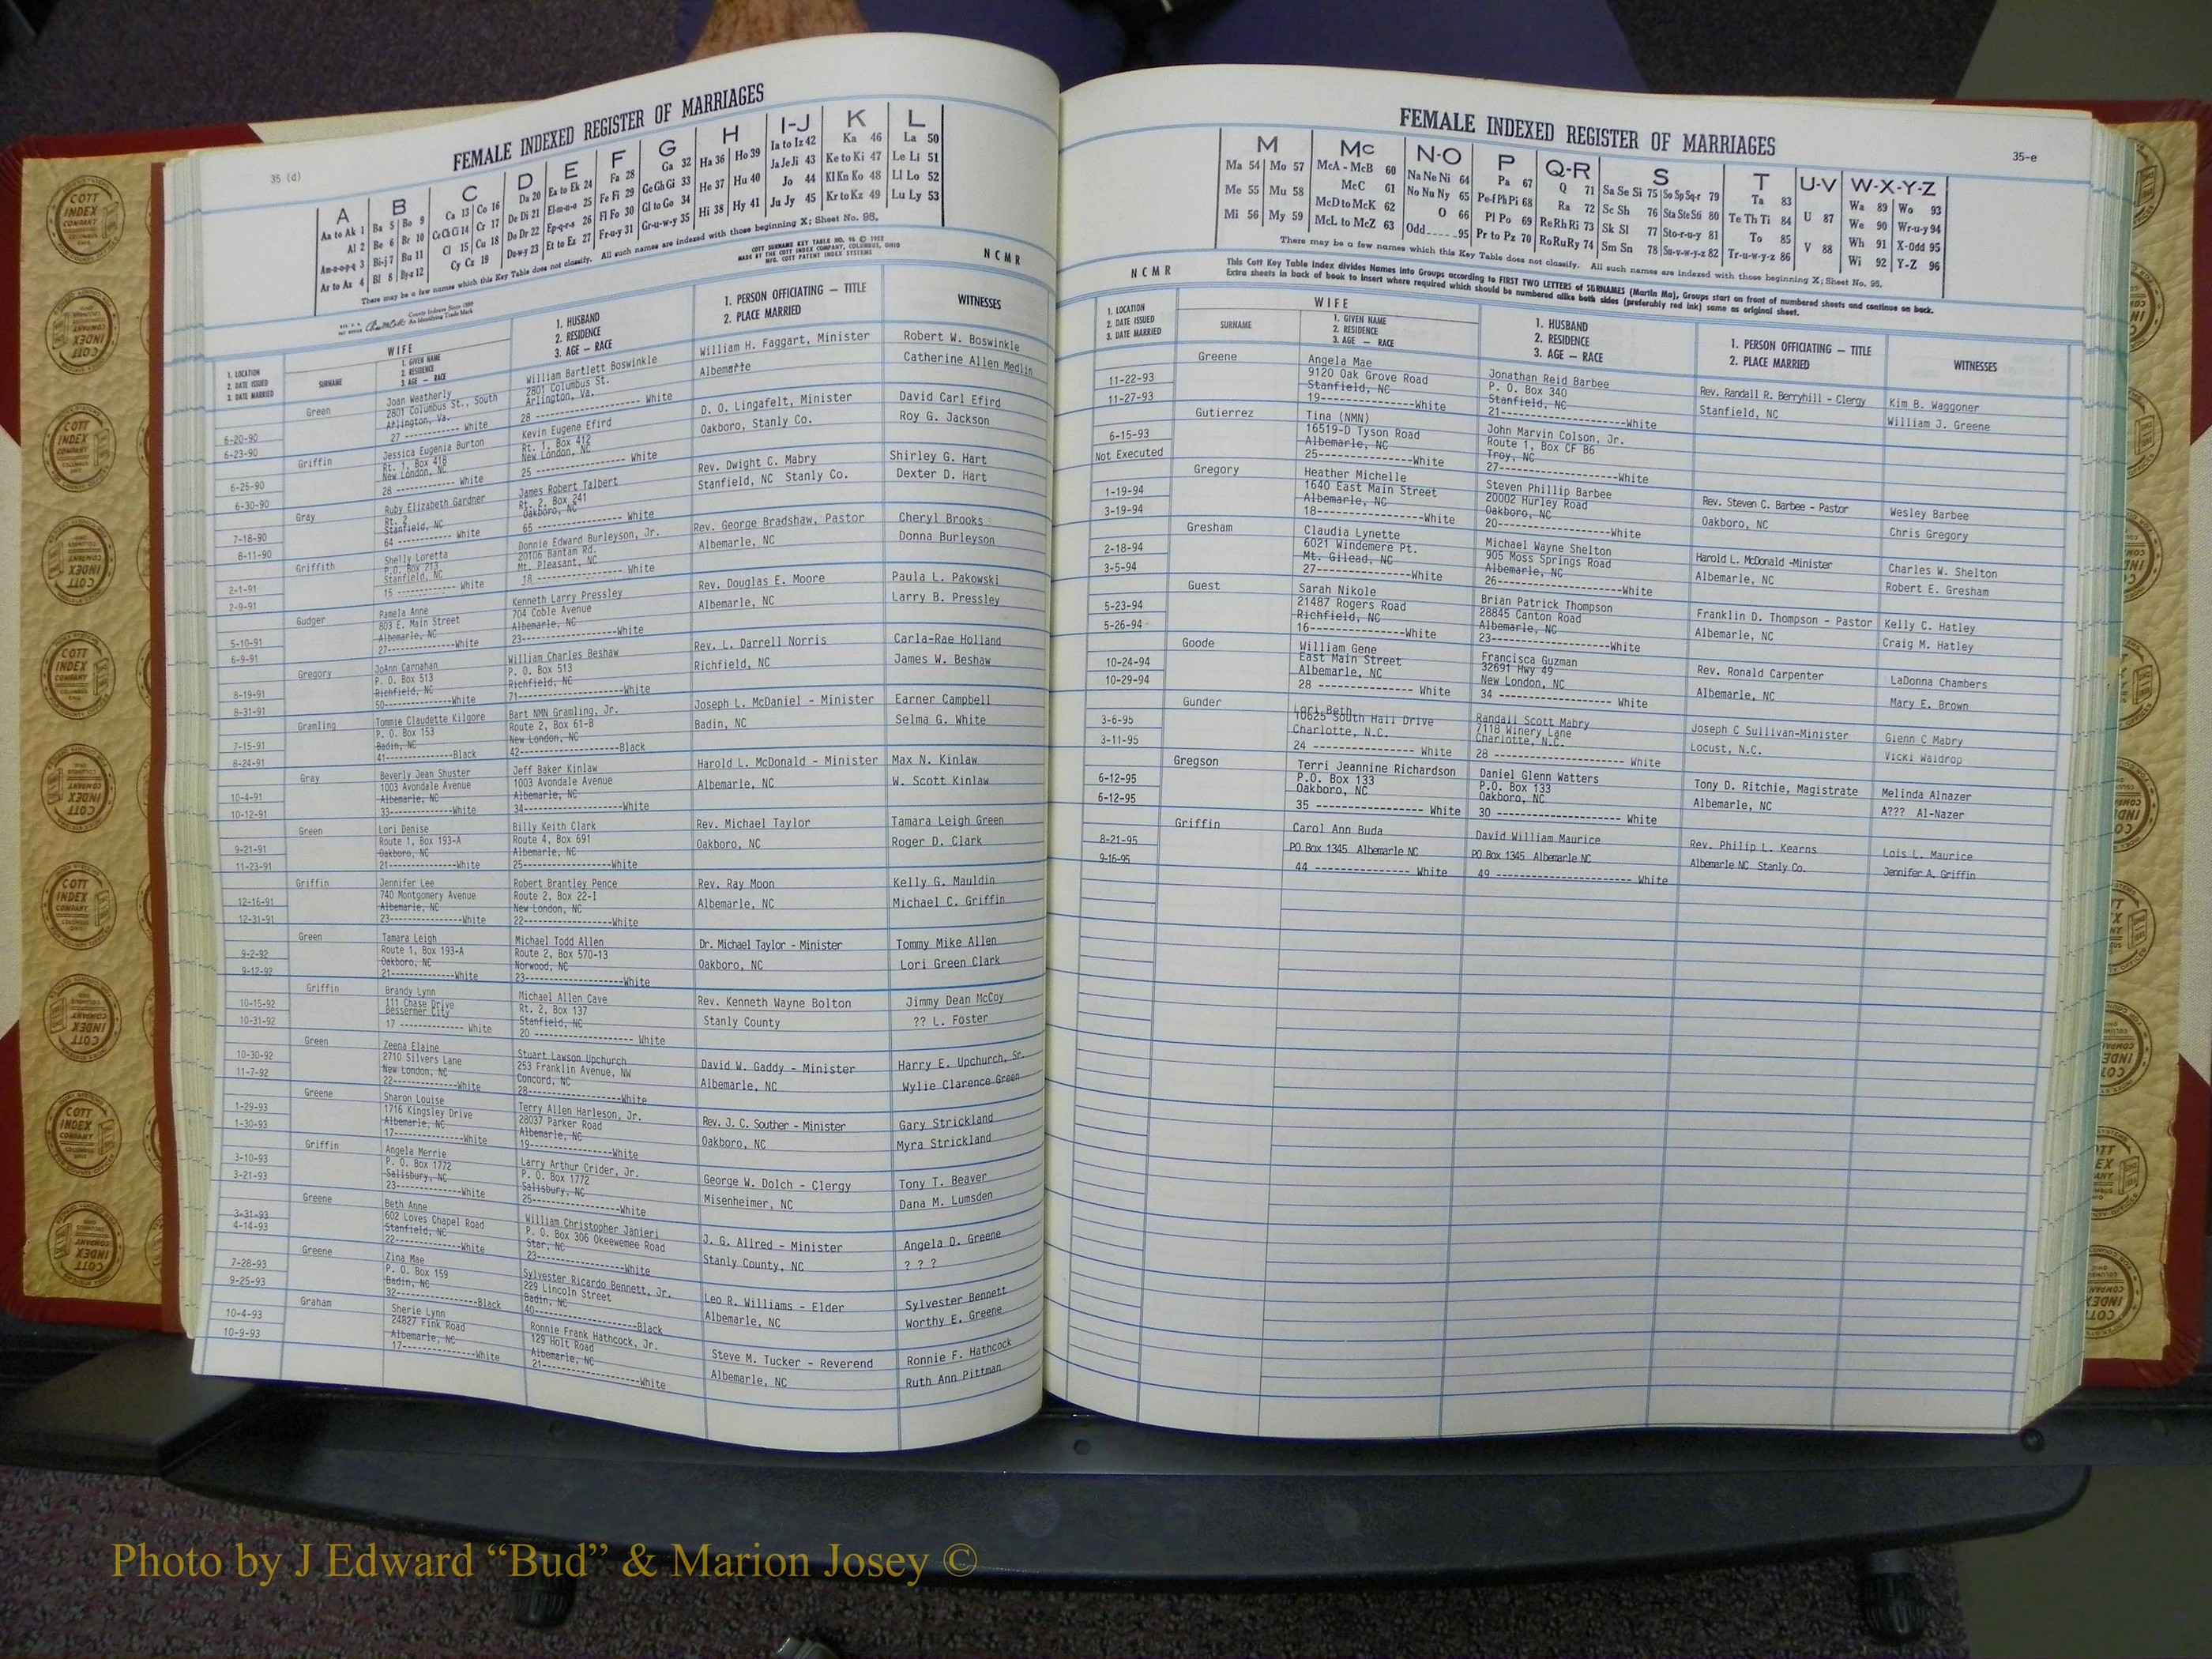 35 (d)
FEMALE INDEXED REGISTER OF MARRIAGES
A B C D E F G H I-J K L
Aa to Ak 1 Ba 5 Bo 9 Ca 13 Co 16 Da 20 Ea to Ek 24 Fa 28 Ga 32 Ha 36 Ho 39 Ia to Iz 42 Ka 46 La 50
Al 2 Be 6 Br 10 Ce Ch Ci 14 Cr 17 De Di 21 El-m-n-o 25 Fe Fi 29 Ge Gh Gi 33 He 37 Hu 40 Ja Je Ji 43 Ke to Ki 47 Le Li 51
Am-n-o-p-q 3 Bi-j 7 Bu 11 Cl 15 Cu 18 Do Dr 22 Ep-q-r-s 26 Fl Fo 30 Gl to Go 34 Hi 38 Hy 41 Jo 44 Kl Kn Ko 48 Ll Lo 52
Ar to Az 4 Bl 8 By-z 12 Cy Cz 19 Du-w-y 23 Et to Ez 27 Fr-u-y 31 Gr-u-w-y 35 Ju Jy 45 Kr to Kz 49 Lu Ly 53
There may be a few names which this Key Table does not classify. All such names are indexed with those beginning X; Sheet No. 95.
COTT SURNAME KEY TABLE NO. 96 © 1952
MADE BY THE COTT INDEX COMPANY, COLUMBUS, OHIO
MFG. COTT PATENT INDEX SYSTEMS
NCMR
County Indexes Since 1888
An Identifying Trade Mark
1. LOCATION
2. DATE ISSUED
3. DATE MARRIED
WIFE
SURNAME
1. GIVEN NAME
2. RESIDENCE
3. AGE — RACE
1. HUSBAND
2. RESIDENCE
3. AGE — RACE
1. PERSON OFFICIATING — TITLE
2. PLACE MARRIED
WITNESSES
6-20-90
6-23-90
Green
Joan Weatherly
2801 Columbus St., South
Arlington, Va.
27 ------------ White
William Bartlett Boswinkle
2801 Columbus St.
Arlington, Va.
28 ------------ White
William H. Faggart, Minister
Albemarle
Robert W. Boswinkle
Catherine Allen Medlin
6-25-90
6-30-90
Griffin
Jessica Eugenia Burton
Rt. 1, Box 418
New London, NC
28 ------------ White
Kevin Eugene Efird
Rt. 1, Box 412
New London, NC
25 ------------ White
D. O. Lingafelt, Minister
Oakboro, Stanly Co.
David Carl Efird
Roy G. Jackson
7-18-90
8-11-90
Gray
Ruby Elizabeth Gardner
Rt. 2
Stanfield, NC
64 ------------ White
James Robert Talbert
Rt. 2, Box 241
Oakboro, NC
65 ------------ White
Rev. Dwight C. Mabry
Stanfield, NC Stanly Co.
Shirley G. Hart
Dexter D. Hart
2-1-91
2-9-91
Griffith
Shelly Loretta
P.O. Box 213
Stanfield, NC
15 ------------ White
Donnie Edward Burleyson, Jr.
20106 Bantam Rd.
Mt. Pleasant, NC
18 ------------ White
Rev. George Bradshaw, Pastor
Albemarle, NC
Cheryl Brooks
Donna Burleyson
5-10-91
6-9-91
Gudger
Pamela Anne
803 E. Main Street
Albemarle, NC
27------------White
Kenneth Larry Pressley
704 Coble Avenue
Albemarle, NC
23------------White
Rev. Douglas E. Moore
Albemarle, NC
Paula L. Pakowski
Larry B. Pressley
8-19-91
8-31-91
Gregory
JoAnn Carnahan
P. O. Box 513
Richfield, NC
50------------White
William Charles Beshaw
P. O. Box 513
Richfield, NC
71------------White
Rev. L. Darrell Norris
Richfield, NC
Carla-Rae Holland
James W. Beshaw
7-15-91
8-24-91
Gramling
Tommie Claudette Kilgore
P. O. Box 153
Badin, NC
41------------Black
Bart NMN Gramling, Jr.
Route 2, Box 61-B
New London, NC
42------------Black
Joseph L. McDaniel - Minister
Badin, NC
Earner Campbell
Selma G. White
10-4-91
10-12-91
Gray
Beverly Jean Shuster
1003 Avondale Avenue
Albemarle, NC
33------------White
Jeff Baker Kinlaw
1003 Avondale Avenue
Albemarle, NC
34------------White
Harold L. McDonald - Minister
Albemarle, NC
Max N. Kinlaw
W. Scott Kinlaw
9-21-91
11-23-91
Green
Lori Denise
Route 1, Box 193-A
Oakboro, NC
21------------White
Billy Keith Clark
Route 4, Box 691
Albemarle, NC
25------------White
Rev. Michael Taylor
Oakboro, NC
Tamara Leigh Green
Roger D. Clark
12-16-91
12-31-91
Griffin
Jennifer Lee
740 Montgomery Avenue
Albemarle, NC
23------------White
Robert Brantley Pence
Route 2, Box 22-I
New London, NC
22------------White
Rev. Ray Moon
Albemarle, NC
Kelly G. Mauldin
Michael C. Griffin
9-2-92
9-12-92
Green
Tamara Leigh
Route 1, Box 193-A
Oakboro, NC
21------------White
Michael Todd Allen
Route 2, Box 570-13
Norwood, NC
23------------White
Dr. Michael Taylor - Minister
Oakboro, NC
Tommy Mike Allen
Lori Green Clark
10-15-92
10-31-92
Griffin
Brandy Lynn
111 Chase Drive
Bessemer City
17 ------------ White
Michael Allen Cave
Rt. 2, Box 137
Stanfield, NC
20 ------------ White
Rev. Kenneth Wayne Bolton
Stanly County
Jimmy Dean McCoy
?? L. Foster
10-30-92
11-7-92
Green
Zeena Elaine
2710 Silvers Lane
New London, NC
22------------White
Stuart Lawson Upchurch
253 Franklin Avenue, NW
Concord, NC
28------------White
David W. Gaddy - Minister
Albemarle, NC
Harry E. Upchurch, Sr.
Wylie Clarence Green
1-29-93
1-30-93
Greene
Sharon Louise
1716 Kingsley Drive
Albemarle, NC
17------------White
Terry Allen Harleson, Jr.
28037 Parker Road
Albemarle, NC
19------------White
Rev. J. C. Souther - Minister
Oakboro, NC
Gary Strickland
Myra Strickland
3-10-93
3-21-93
Griffin
Angela Merrie
P. O. Box 1772
Salisbury, NC
23------------White
Larry Arthur Crider, Jr.
P. O. Box 1772
Salisbury, NC
25------------White
George W. Dolch - Clergy
Misenheimer, NC
Tony T. Beaver
Dana M. Lumsden
3-31-93
4-14-93
Greene
Beth Anne
602 Loves Chapel Road
Stanfield, NC
22------------White
William Christopher Janieri
P. O. Box 306 Okeewemee Road
Star, NC
23------------White
J. G. Allred - Minister
Stanly County, NC
Angela D. Greene
? ? ?
7-28-93
9-25-93
Greene
Zina Mae
P. O. Box 159
Badin, NC
32------------Black
Sylvester Ricardo Bennett, Jr.
229 Lincoln Street
Badin, NC
40------------Black
Leo R. Williams - Elder
Albemarle, NC
Sylvester Bennett
Worthy E. Greene
10-4-93
10-9-93
Graham
Sherie Lynn
24827 Fink Road
Albemarle, NC
17------------White
Ronnie Frank Hathcock, Jr.
129 Holt Road
Albemarle, NC
21------------White
Steve M. Tucker - Reverend
Albemarle, NC
Ronnie F. Hathcock
Ruth Ann Pittman
35-e
FEMALE INDEXED REGISTER OF MARRIAGES
M Mc N-O P Q-R S T U-V W-X-Y-Z
Ma 54 Mo 57 McA - McB 60 Na Ne Ni 64 Pa 67 Q 71 Sa Se Si 75 So Sp Sq-r 79 Ta 83 U 87 Wa 89 Wo 93
Me 55 Mu 58 McC 61 No Nu Ny 65 Pe-f Ph Pi 68 Ra 72 Sc Sh 76 Sta Ste Sti 80 Te Th Ti 84 V 88 We 90 Wr-u-y 94
Mi 56 My 59 McD to McK 62 O 66 Pl Po 69 Re Rh Ri 73 Sk Sl 77 Sto-r-u-y 81 To 85 Wh 91 X-Odd 95
McL to McZ 63 Odd 95 Pr to Pz 70 Ro Ru Ry 74 Sm Sn 78 Su-v-w-y-z 82 Tr-u-w-y-z 86 Wi 92 Y-Z 96
There may be a few names which this Key Table does not classify. All such names are indexed with those beginning X; Sheet No. 95.
NCMR
This Cott Key Table Index divides Names into Groups according to FIRST TWO LETTERS of SURNAMES (Martin Ma), Groups start on front of numbered sheets and continue on back.
Extra sheets in back of book to insert where required which should be numbered alike both sides (preferably red ink) same as original sheet.
1. LOCATION
2. DATE ISSUED
3. DATE MARRIED
WIFE
SURNAME
1. GIVEN NAME
2. RESIDENCE
3. AGE — RACE
1. HUSBAND
2. RESIDENCE
3. AGE — RACE
1. PERSON OFFICIATING — TITLE
2. PLACE MARRIED
WITNESSES
11-22-93
11-27-93
Greene
Angela Mae
9120 Oak Grove Road
Stanfield, NC
19------------White
Jonathan Reid Barbee
P. O. Box 340
Stanfield, NC
21------------White
Rev. Randall R. Berryhill - Clergy
Stanfield, NC
Kim B. Waggoner
William J. Greene
6-15-93
Not Executed
Gutierrez
Tina (NMN)
16519-D Tyson Road
Albemarle, NC
25------------White
John Marvin Colson, Jr.
Route 1, Box CF B6
Troy, NC
27------------White
1-19-94
3-19-94
Gregory
Heather Michelle
1640 East Main Street
Albemarle, NC
18------------White
Steven Phillip Barbee
20002 Hurley Road
Oakboro, NC
20------------White
Rev. Steven C. Barbee - Pastor
Oakboro, NC
Wesley Barbee
Chris Gregory
2-18-94
3-5-94
Gresham
Claudia Lynette
6021 Windemere Pt.
Mt. Gilead, NC
27------------White
Michael Wayne Shelton
905 Moss Springs Road
Albemarle, NC
26------------White
Harold L. McDonald -Minister
Albemarle, NC
Charles W. Shelton
Robert E. Gresham
5-23-94
5-26-94
Guest
Sarah Nikole
21487 Rogers Road
Richfield, NC
16------------White
Brian Patrick Thompson
28845 Canton Road
Albemarle, NC
23------------White
Franklin D. Thompson - Pastor
Albemarle, NC
Kelly C. Hatley
Craig M. Hatley
10-24-94
10-29-94
Goode
William Gene
East Main Street
Albemarle, NC
28 ------------ White
Francisca Guzman
32691 Hwy 49
New London, NC
34 ------------ White
Rev. Ronald Carpenter
Albemarle, NC
LaDonna Chambers
Mary E. Brown
3-6-95
3-11-95
Gunder
Lori Beth
10625 South Hall Drive
Charlotte, N.C.
24 ------------ White
Randall Scott Mabry
7118 Winery Lane
Charlotte, N.C.
28 ------------ White
Joseph C Sullivan-Minister
Locust, N.C.
Glenn C Mabry
Vicki Waldrop
6-12-95
6-12-95
Gregson
Terri Jeannine Richardson
P.O. Box 133
Oakboro, NC
35 ------------ White
Daniel Glenn Watters
P.O. Box 133
Oakboro, NC
30 ------------ White
Tony D. Ritchie, Magistrate
Albemarle, NC
Melinda Alnazer
A??? Al-Nazer
8-21-95
9-16-95
Griffin
Carol Ann Buda
PO Box 1345 Albemarle NC
44 ------------ White
David William Maurice
PO Box 1345 Albemarle NC
49 ------------ White
Rev. Philip L. Kearns
Albemarle NC Stanly Co.
Lois L. Maurice
Jennifer A. Griffin
COTT
INDEX
COMPANY
Photo by J Edward “Bud” & Marion Josey ©